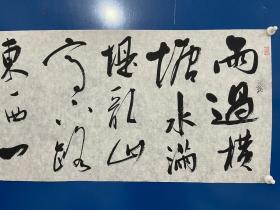 雨過橫
塘水滿
堤亂山
高下路
東西一